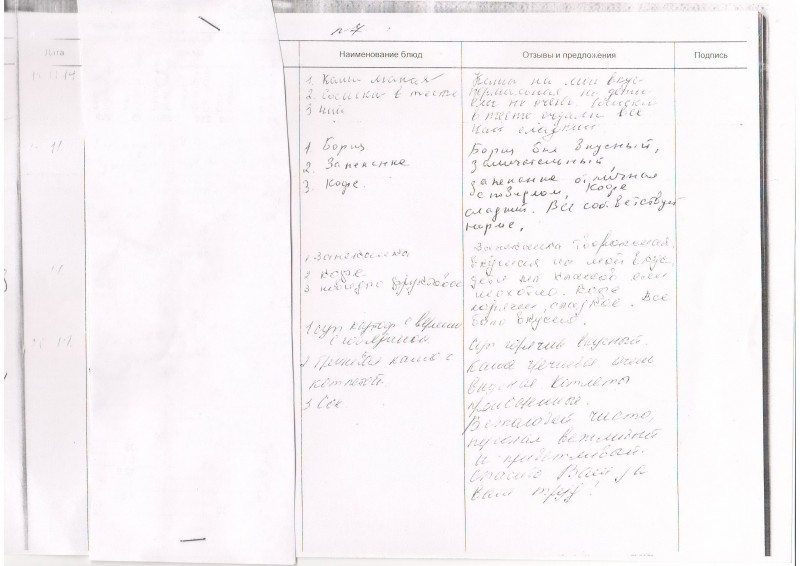 №7
Дата
Наименование блюд
Отзывы и предложения
Подпись
1. Каша манная
2. Сосиска в тесте
3 чай
Каша на мой вкус
нормальная, но дети
ели не очень. Сосиски
в тесте съедали все
чай сладкий
11
1 Борщ
2. Запеканка
3. Кофе
Борщ был вкусный,
замечательный
запеканка отличная
с повидлом, кофе
сладкий. Все соответствует
норме.
11
1 Запеканка
2 Кофе
3
Запеканка творожная
вкусная на мой вкус,
дети
неохотно. Кофе
горячий, сладкое. Все
было вкусно.
1 Суп картоф с
2 Гречневая каша с
котлетой.
3 Сок
Суп горячий вкусный.
Каша гречневая очень
вкусная котлеты
В столовой чисто,
персонал вежливый
и приветливый.
Спасибо Вам за
Ваш труд!